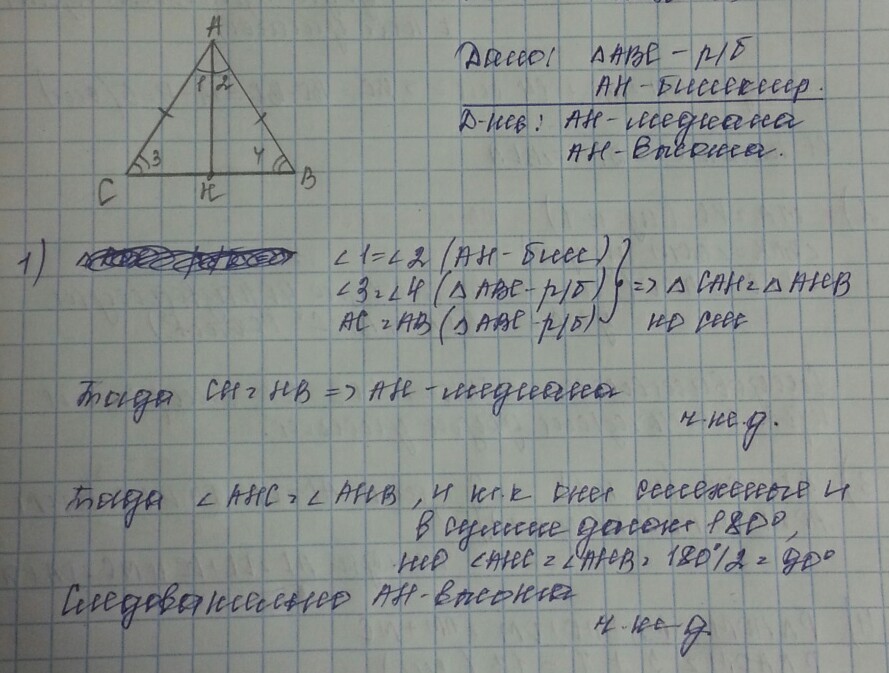 A
1 2
3 4
C H B
Дано: △ABC - р/б
AH - биссектр.
Д-ть: AH - медиана
AH - высота.
1)
∠1=∠2 (AH - бисс)
∠3=∠4 (△ABC - р/б) => △CAH = △AHB
AC = AB (△ABC - р/б) по
Тогда CH = HB => AH - медиана
ч.т.д.
Тогда ∠AHC = ∠AHB, и т.к они смежные и
в сумме дают 180°,
то ∠AHC = ∠AHB = 180°/2 = 90°
Следовательно AH - высота
ч.т.д